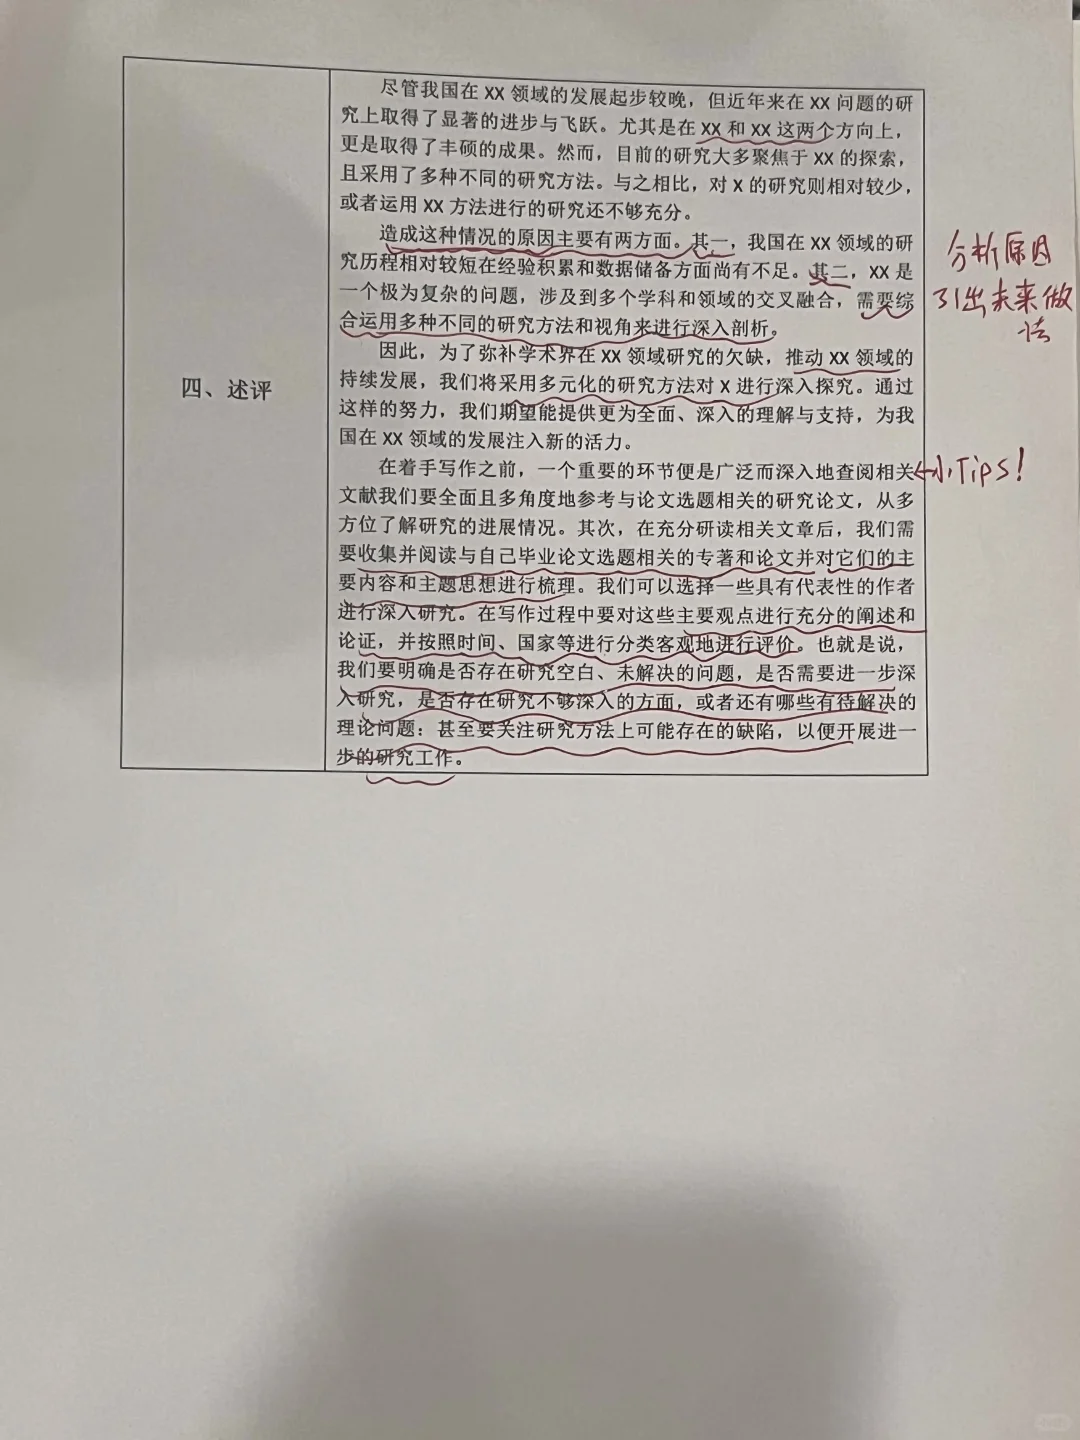 四、述评
尽管我国在 XX 领域的发展起步较晚，但近年来在 XX 问题的研
究上取得了显著的进步与飞跃。尤其是在 XX 和 XX 这两个方向上，
更是取得了丰硕的成果。然而，目前的研究大多聚焦于 XX 的探索，
且采用了多种不同的研究方法。与之相比，对 X 的研究则相对较少，
或者运用 XX 方法进行的研究还不够充分。
造成这种情况的原因主要有两方面。其一，我国在 XX 领域的研
究历程相对较短在经验积累和数据储备方面尚有不足。其二，XX 是
一个极为复杂的问题，涉及到多个学科和领域的交叉融合，需要综
合运用多种不同的研究方法和视角来进行深入剖析。
因此，为了弥补学术界在 XX 领域研究的欠缺，推动 XX 领域的
持续发展，我们将采用多元化的研究方法对 X 进行深入探究。通过
这样的努力，我们期望能提供更为全面、深入的理解与支持，为我
国在 XX 领域的发展注入新的活力。
在着手写作之前，一个重要的环节便是广泛而深入地查阅相关
文献我们要全面且多角度地参考与论文选题相关的研究论文，从多
方位了解研究的进展情况。其次，在充分研读相关文章后，我们需
要收集并阅读与自己毕业论文选题相关的专著和论文并对它们的主
要内容和主题思想进行梳理。我们可以选择一些具有代表性的作者
进行深入研究。在写作过程中要对这些主要观点进行充分的阐述和
论证，并按照时间、国家等进行分类客观地进行评价。也就是说，
我们要明确是否存在研究空白、未解决的问题，是否需要进一步深
入研究，是否存在研究不够深入的方面，或者还有哪些有待解决的
理论问题：甚至要关注研究方法上可能存在的缺陷，以便开展进一
步的研究工作。
分析原因
引出未来做
法
←小Tips！